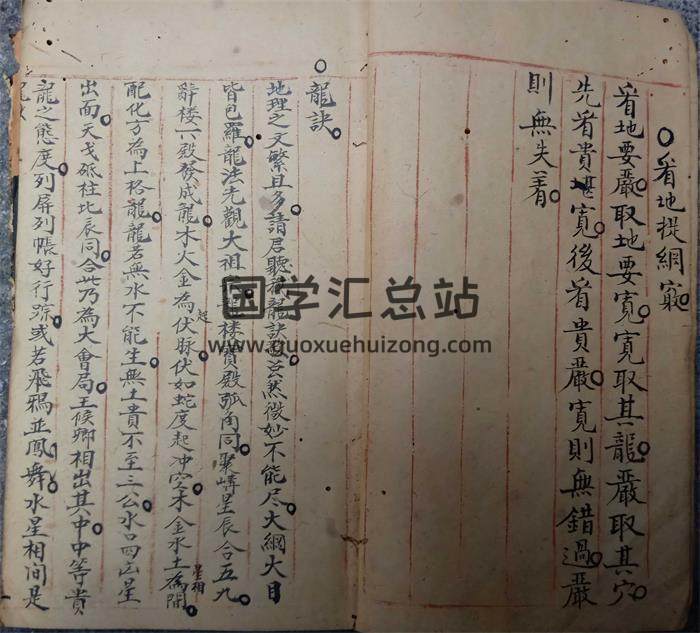 看地提綱竅
看地要嚴取地要寬寬取其龍嚴取其穴
先看貴堪寬後看貴嚴寬則無錯過嚴
則無失着
龍訣
地理之文繁且多請君聽龍訣芸然微妙不能尽大綱大目
皆包羅龍法先觀大祖龍楼寶殿弧角同聚講星辰合五九
辞楼下殿發成龍木火金為伏脉伏如蛇度起冲空木金水土為開
起
星相
配化方為上格龍龍若無水不能生無土貴不至三公水口四凶星
出面天戈砥柱比辰同合此乃為大會局王候卿相出其中中等貴
龍之態度列屏列帳好行淙或若飛鴉並鳳舞水星相间是
国学汇总站
www.guoxuehuizong.com